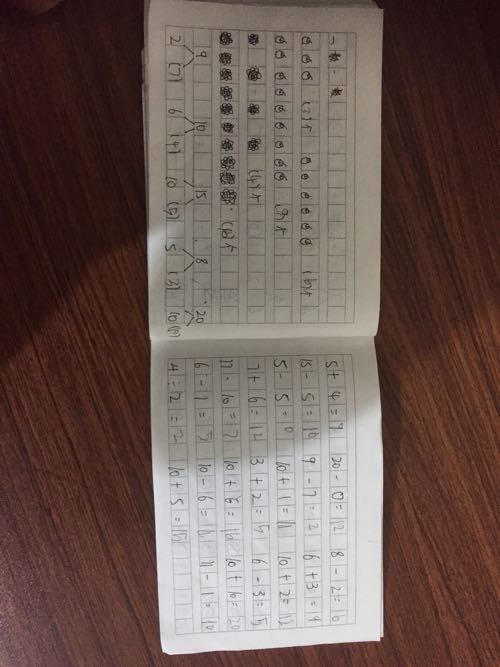 一数一数
(3)个 (6)个
(9)个
(4)个
(10)个
9 10 15 8 20
2 (7) 6 (4) 10 (5) 5 (3) 10
5+4=9 8-2=6
15-5=10 9-7=2 6+3=9
5-5=0 10+1=11 10+2=12
7+6=12 3+2=5
17-10=7 10+6=16 10+10=20
6-1=5 11-1=10
4-2=2 10+5=15